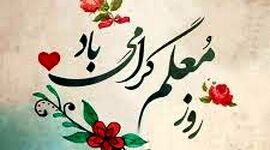 روز مُعلم گرامی باد